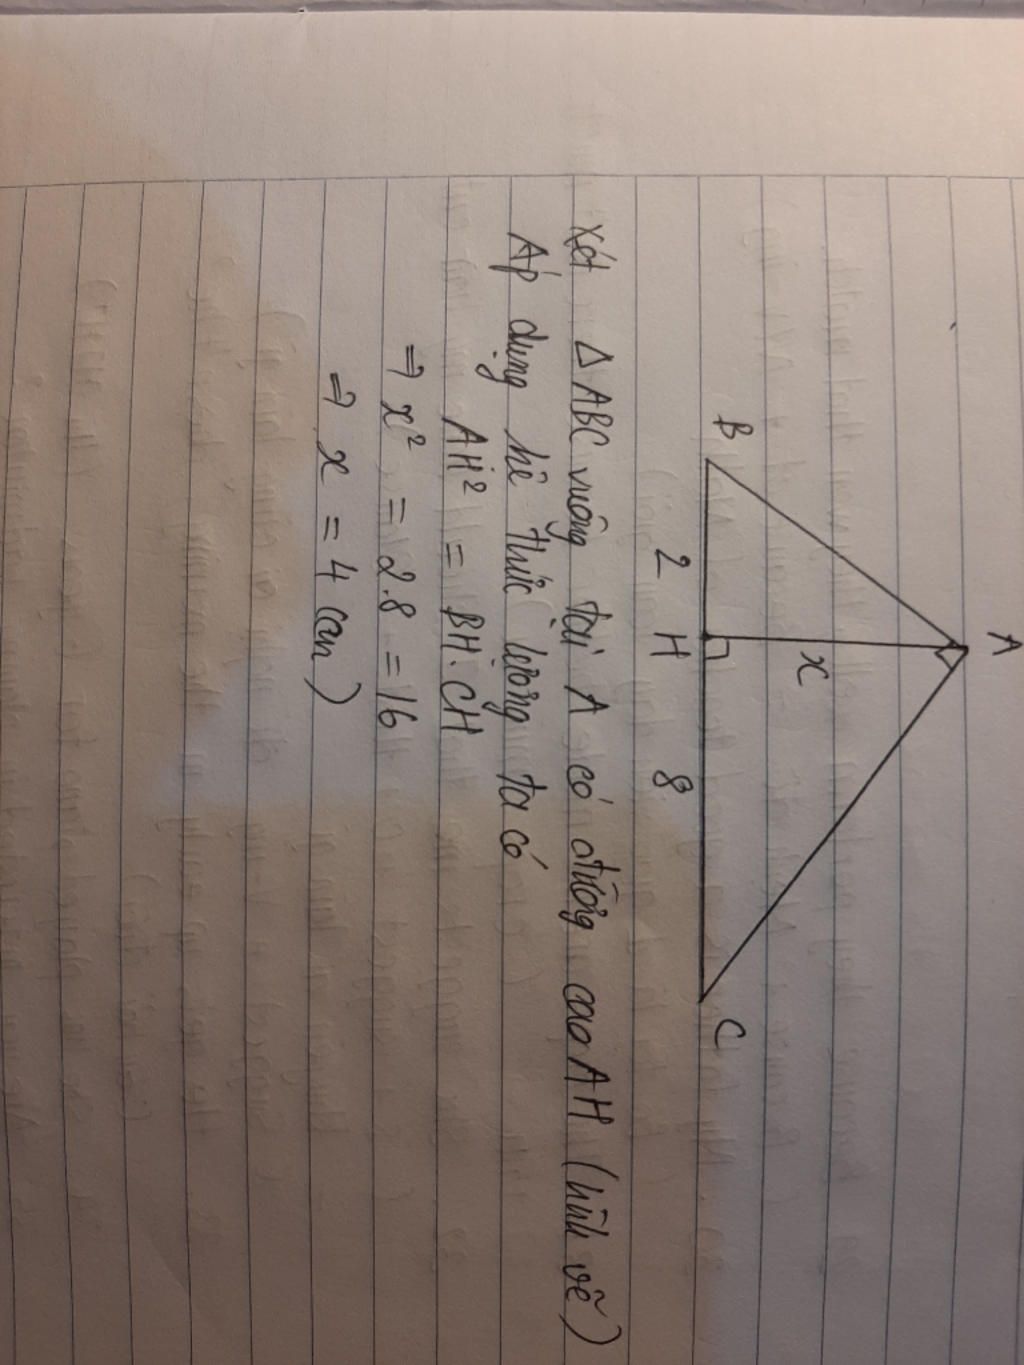 A
x
B
2 H 8
C
Xét Δ ABC vuông tại A có đường cao AH (hình vẽ)
Áp dụng hê thức lượng ta có
AH² = BH.CH
⇒ x² = 2.8 = 16
⇒ x = 4 (cm)